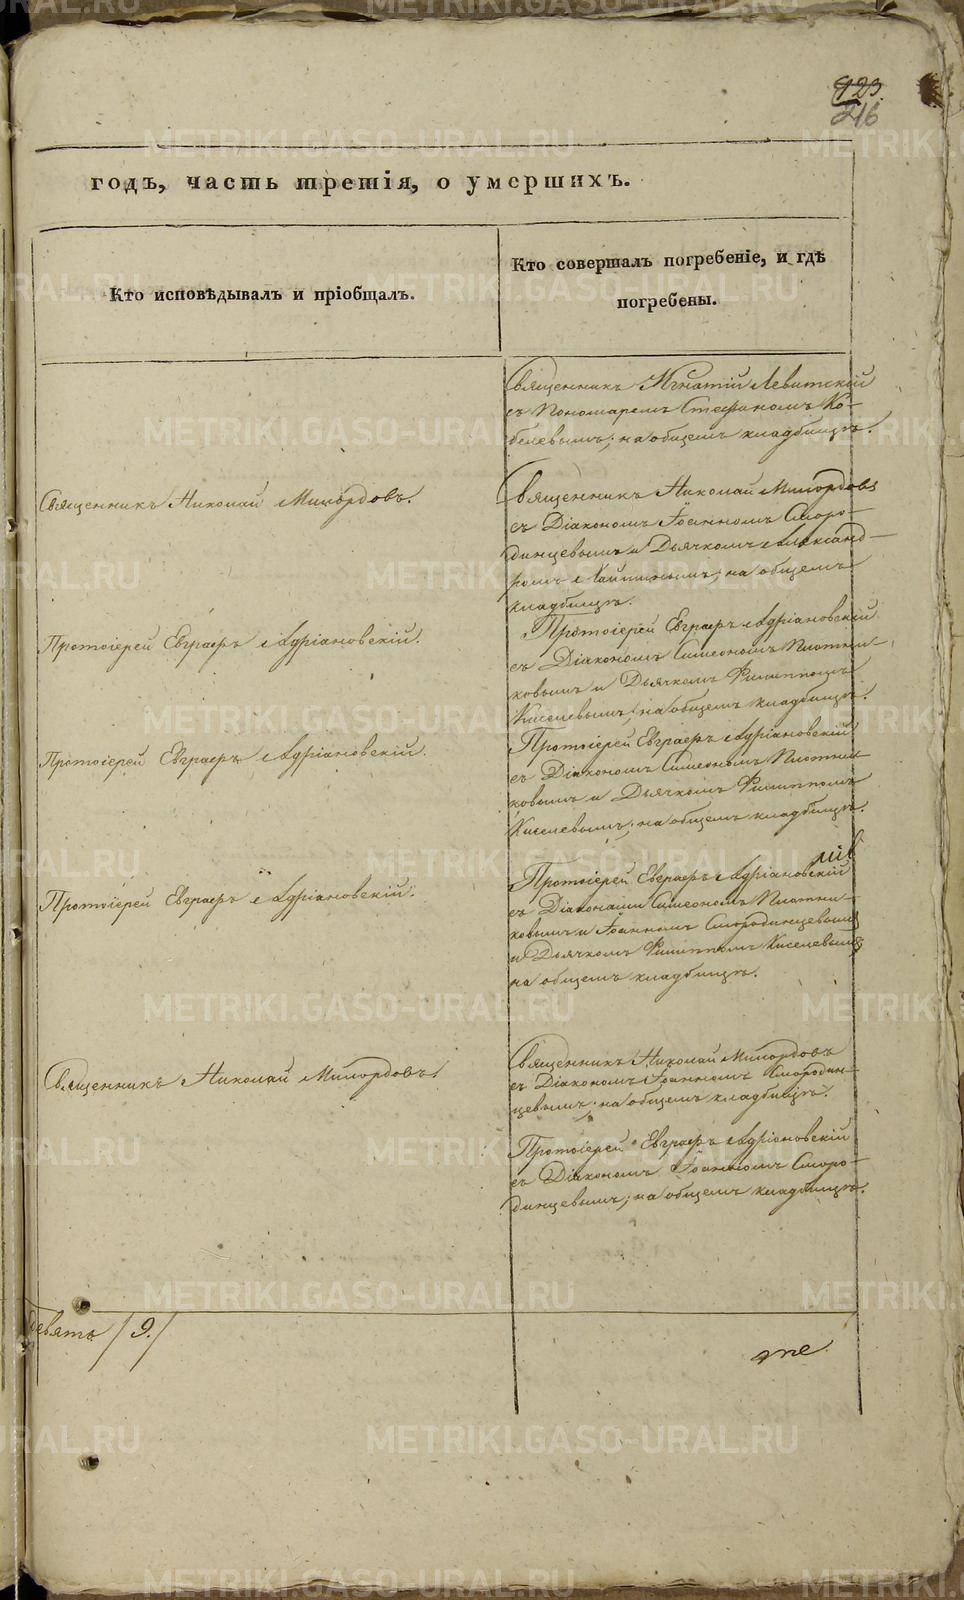 423
216
годъ, часть третія, о умершихъ.
Кто исповѣдывалъ и пріобщалъ.
Кто совершалъ погребеніе, и гдѣ
погребены.
Священникъ Игнатій Левитскій
съ Пономаремъ Стефаномъ Ко-
белевымъ; на общемъ кладбищѣ.
Священникъ Николай Милордовъ.
Священникъ Николай Милордовъ
съ Діакономъ Іоанномъ Сморо-
динцевымъ и Дьячкомъ Александ-
ромъ; на общемъ
кладбищѣ.
Протоіерей Евграфъ Адріановскій.
Протоіерей Евграфъ Адріановскій
съ Діакономъ Симеономъ Плотни-
ковымъ и Дьячкомъ Филиппомъ
Киселевымъ; на общемъ кладбищѣ.
Протоіерей Евграфъ Адріановскій.
Протоіерей Евграфъ Адріановскій
съ Діакономъ Симеономъ Плотни-
ковымъ и Дьячкомъ Филиппомъ
Киселевымъ; на общемъ кладбищѣ.
Протоіерей Евграфъ Адріановскій.
Протоіерей Евграфъ Адріановскій
съ Діаконами Симеономъ Плотни-
ковымъ и Іоанномъ Смородинцевымъ
и Дьячкомъ Филиппомъ Киселевымъ
на общемъ кладбищѣ.
Священникъ Николай Милордовъ.
Священникъ Николай Милордовъ
съ Діакономъ Іоанномъ Смородин-
цевымъ; на общемъ кладбищѣ.
Протоіерей Евграфъ Адріановскій
съ Діакономъ Іоанномъ Сморо-
динцевымъ; на общемъ кладбищѣ.
девять /9./
METRIKI.GASO-URAL.RU